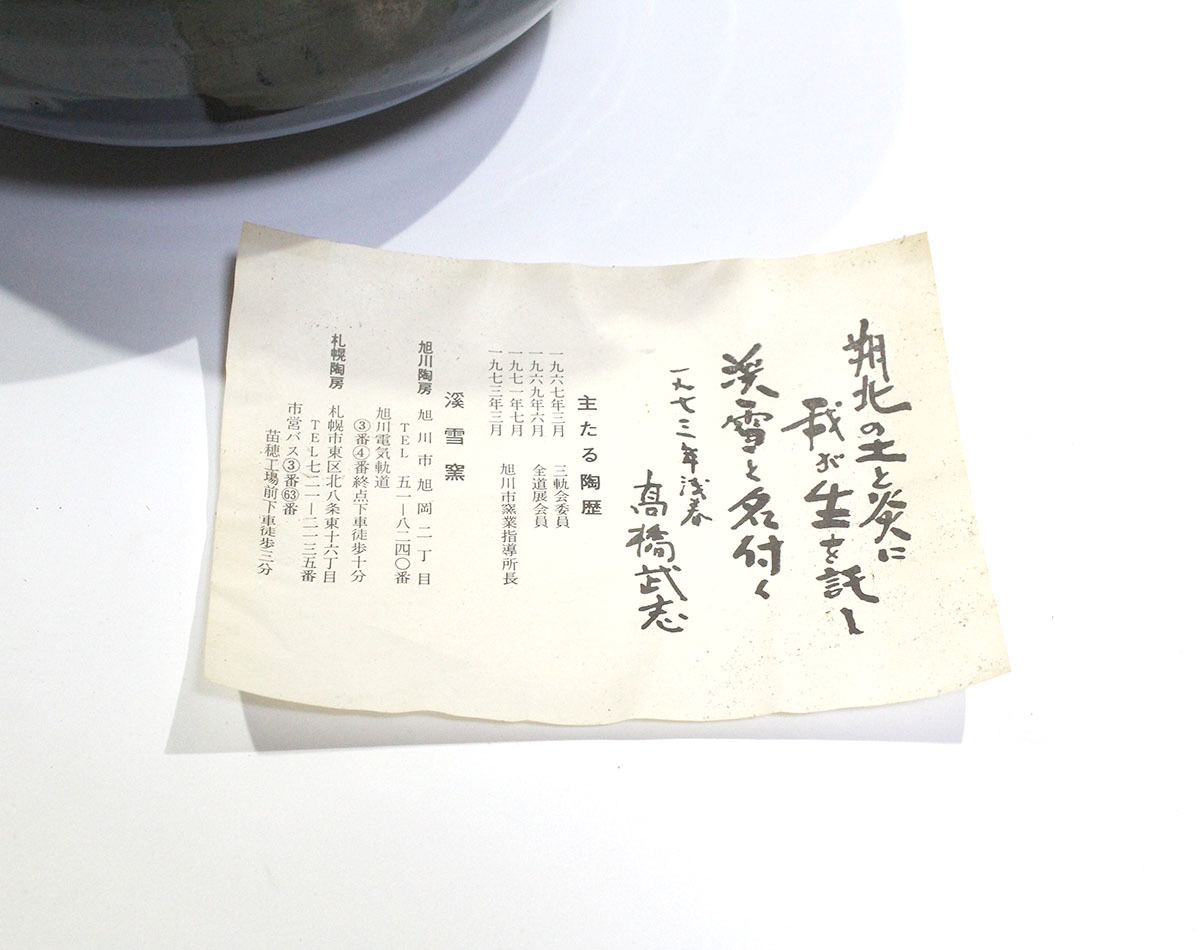 朔北の土と炎に
我が生を託し
渓雪と名付く
一九七三年浅春
高橋武志
主たる陶歴
一九六七年三月 三軌会委員
一九六九年六月 全道展会員
一九七一年七月 旭川市窯業指導所長
一九七三年三月
溪雪窯
旭川陶房 旭川市旭岡二丁目
TEL 五一―八二四〇番
旭川電気軌道
③番④番終点下車徒歩十分
札幌陶房 札幌市東区北八条東十六丁目
TEL七二一―二一三五番
市営バス③番㊿番
苗穂工場前下車徒歩三分